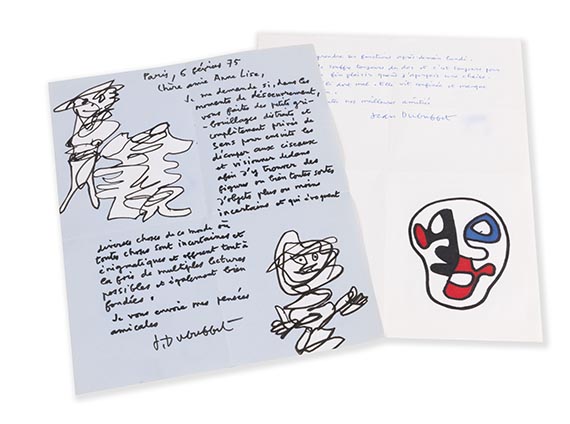 Paris, 6 février 75
Chère amie Anne Lise,
Je me demande si, dans les
moments de désœuvrement,
vous faites des petits gri-
bouillages distraits et
complètement privés de
sens pour ensuite les
découper aux ciseaux
et visionner dedans
afin d'y trouver des
figures ou bien toutes sortes
d'objets plus ou moins
incertains et qui évoquent
diverses choses de ce monde où
toutes choses sont incertaines et
énigmatiques et offrent tout à
la fois de multiples lectures
possibles et également bien
fondées.
Je vous envoie mes pensées
amicales
J. Dubuffet
ses fonctions après demain lundi.
souffre toujours du dos et c'est toujours pour
plaisir quand j'aperçois une chaise.
nos meilleures amitiés
Jean Dubuffet